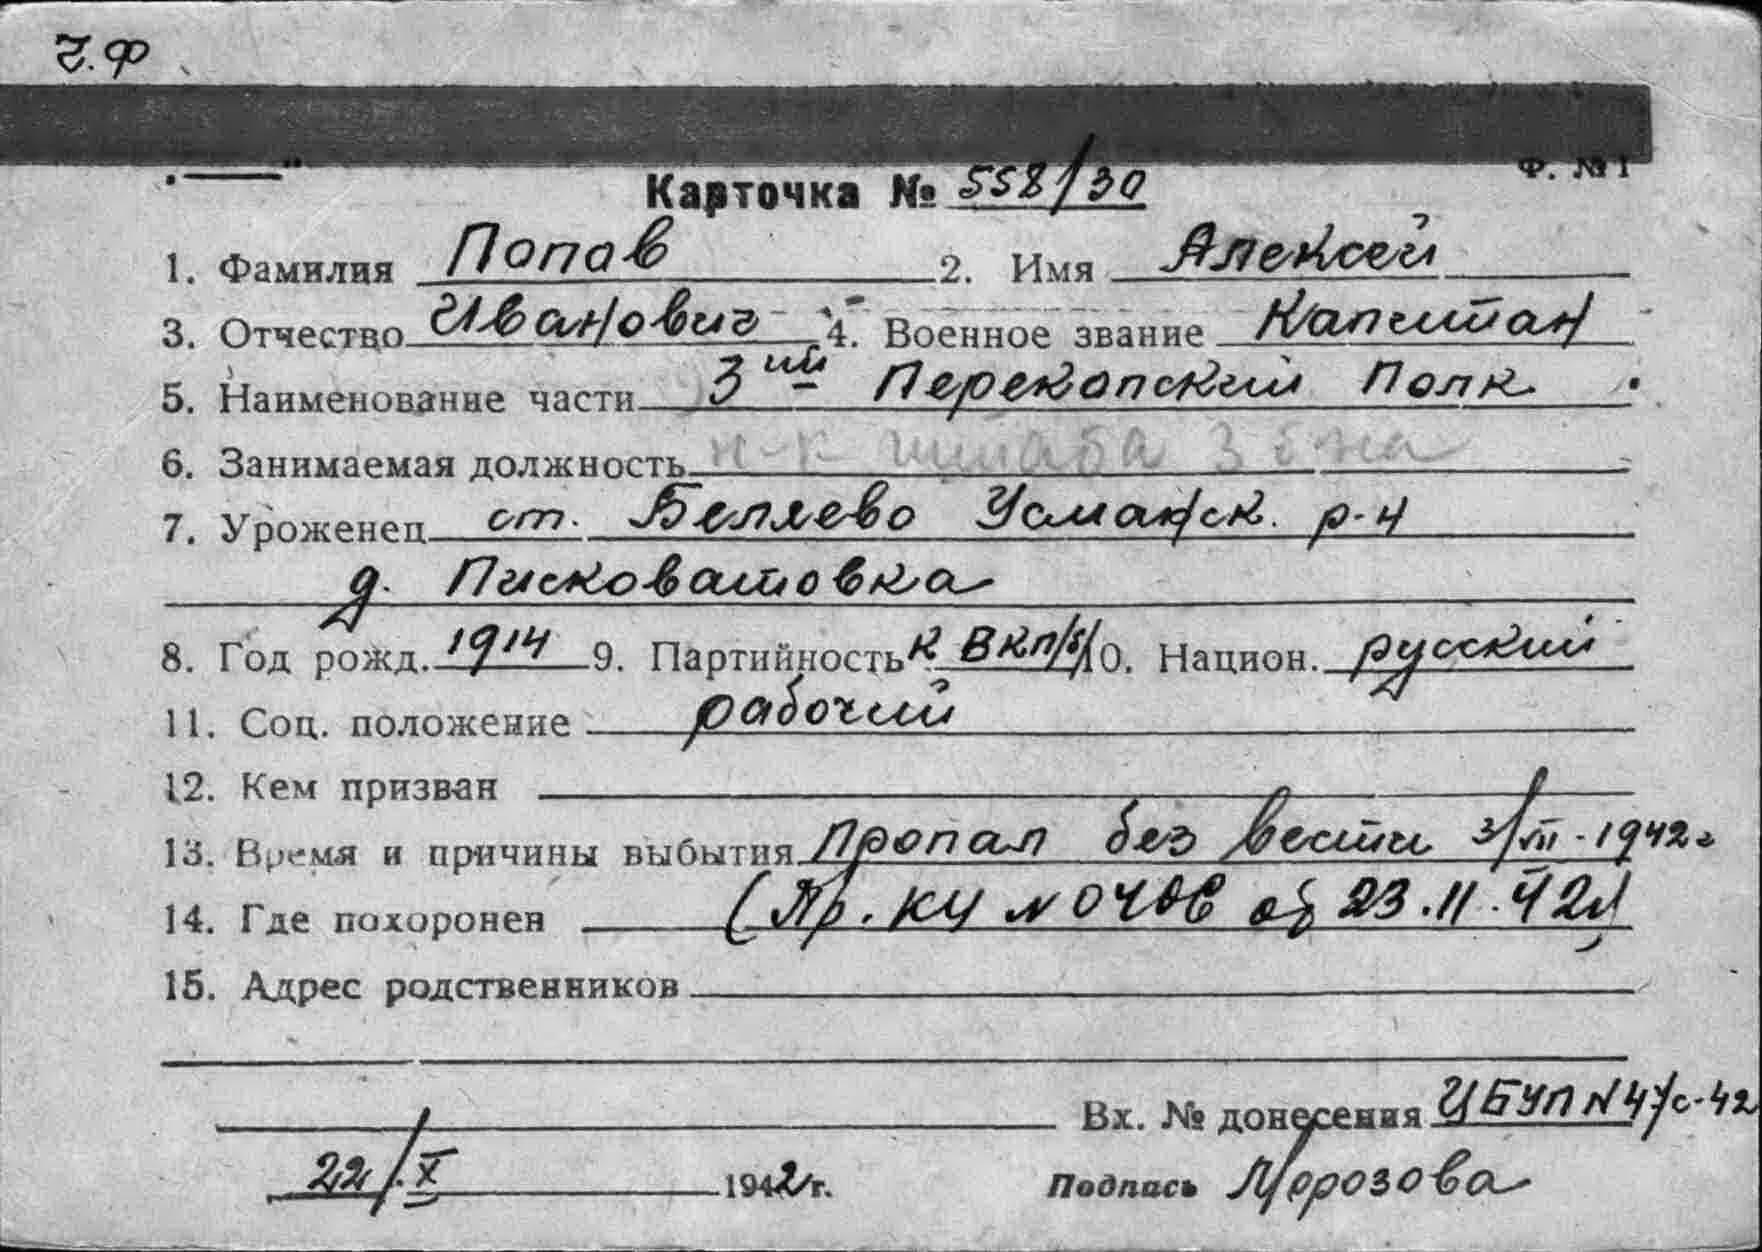 Ф. №1
Карточка № 558/30
1. Фамилия Попов 2. Имя Алексей
3. Отчество Иванович 4. Военное звание Капитан
5. Наименование части 3ий Перекопский Полк
6. Занимаемая должность н-к штаба 3 б-на
7. Уроженец ст. Беляево Усманск. р-н
д. Писковатовка
8. Год рожд. 1914 9. Партийность К ВКП/б/ 10. Национ. русский
11. Соц. положение рабочий
12. Кем призван
13. Время и причины выбытия Пропал без вести 3/III-1942г
14. Где похоронен (Пр. КЧ № от 23.11.42г)
15. Адрес родственников
Вх. № донесения ЦБУП №
22/X 1942г. Подпись Морозова